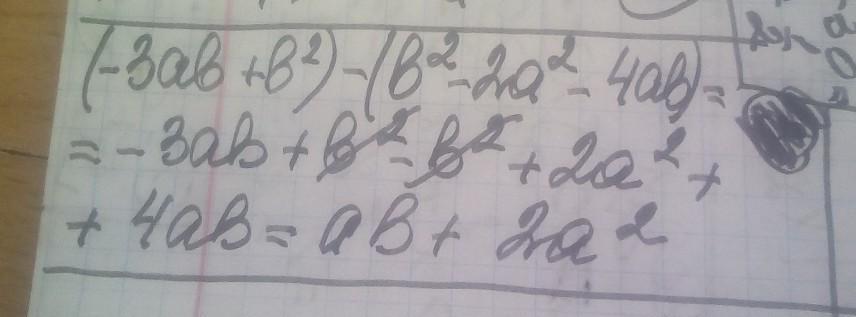 (-3ab+b²)-(b²-2a²-4ab)=
=-3ab+b²-b²+2a²+
+4ab=ab+2a²